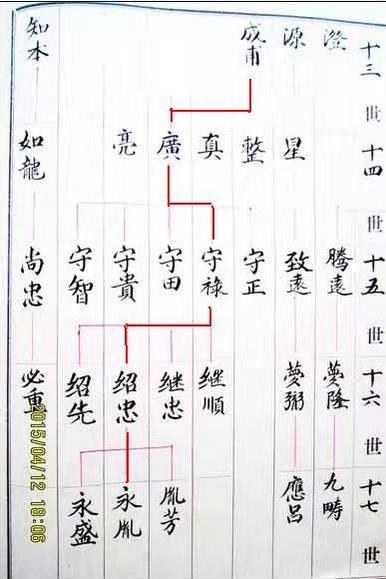 十三世 澄 源 成甫 知本
十四世 星 整 真 廣 亮 如龍
十五世 騰遠 致遠 守正 守祿 守田 守貴 守智 尚忠
十六世 夢隆 夢弼 继順 继忠 绍忠 绍先 必重
十七世 九疇 應吕 胤芳 永胤 永盛
2015/04/12 18:06